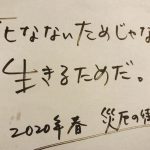 となないためじゃな
生きるためだ。
2020年春 災厄の